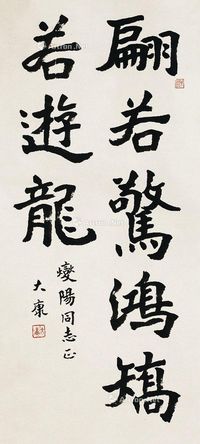 翩若驚鴻矯
若遊龍
燮陽同志正
大康